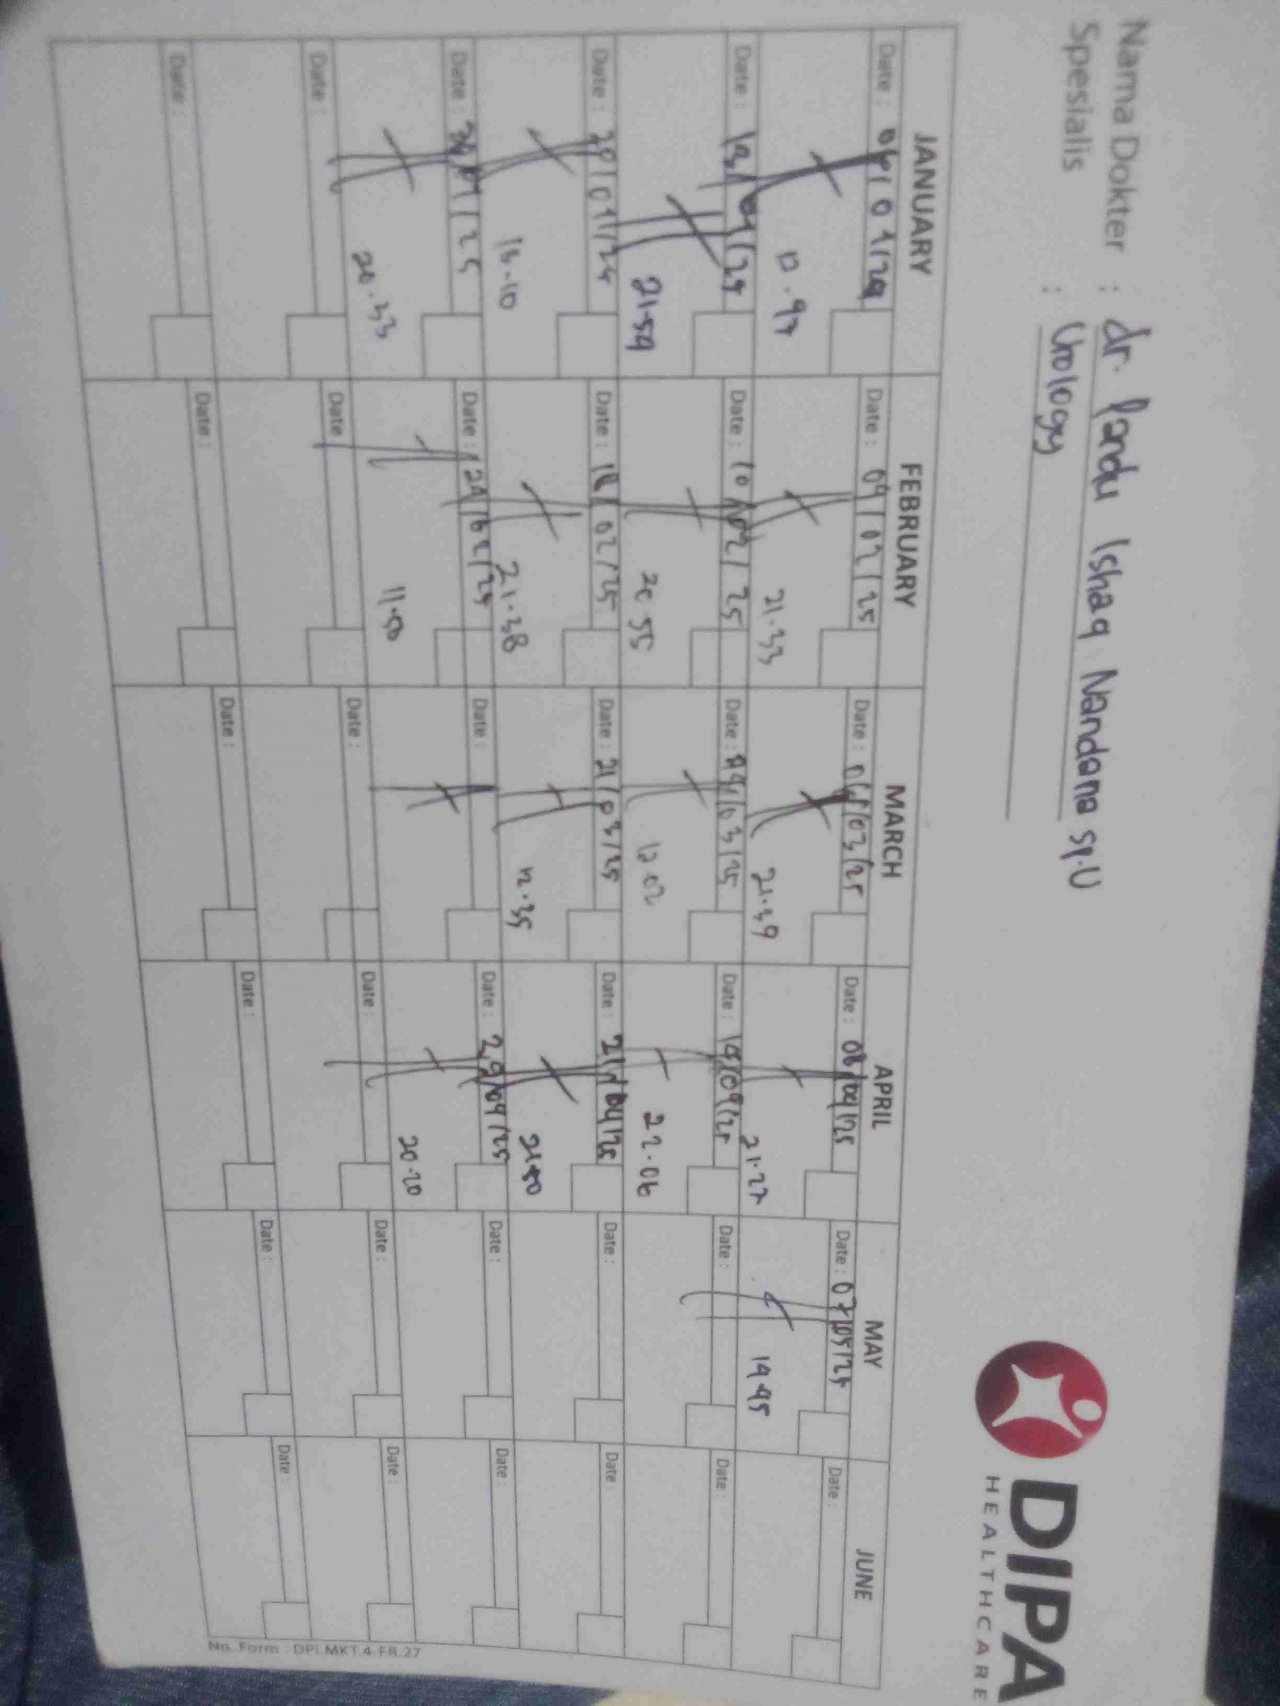 Nama Dokter : dr. Pandu Ishaq Nandana Sp.U
Spesialis : Urology
DIPA
HEALTHCARE
JANUARY FEBRUARY MARCH APRIL MAY JUNE
Date : 06/01/25 Date : 09/02/25 Date : 04/03/25 Date : 08/04/25 Date : 07/05/25 Date :
21.33 21.39 21.27 19.45
Date : 13/01/25 Date : 10/02/25 Date : 03/25 Date : 19/04/25 Date : Date :
21.59 20.55 12.02 22.06
Date : 20/01/25 Date : 18/02/25 Date : 21/03/25 Date : 21/04/25 Date : Date :
18.10 21.38 12.35
Date : /01/25 Date : 24/02/25 Date : Date : 29/04/25 Date : Date :
20.33 11.50 20.20
Date : Date : Date : Date : Date : Date :
Date : Date : Date : Date : Date : Date :
No. Form : DPI.MKT.4-FR.27